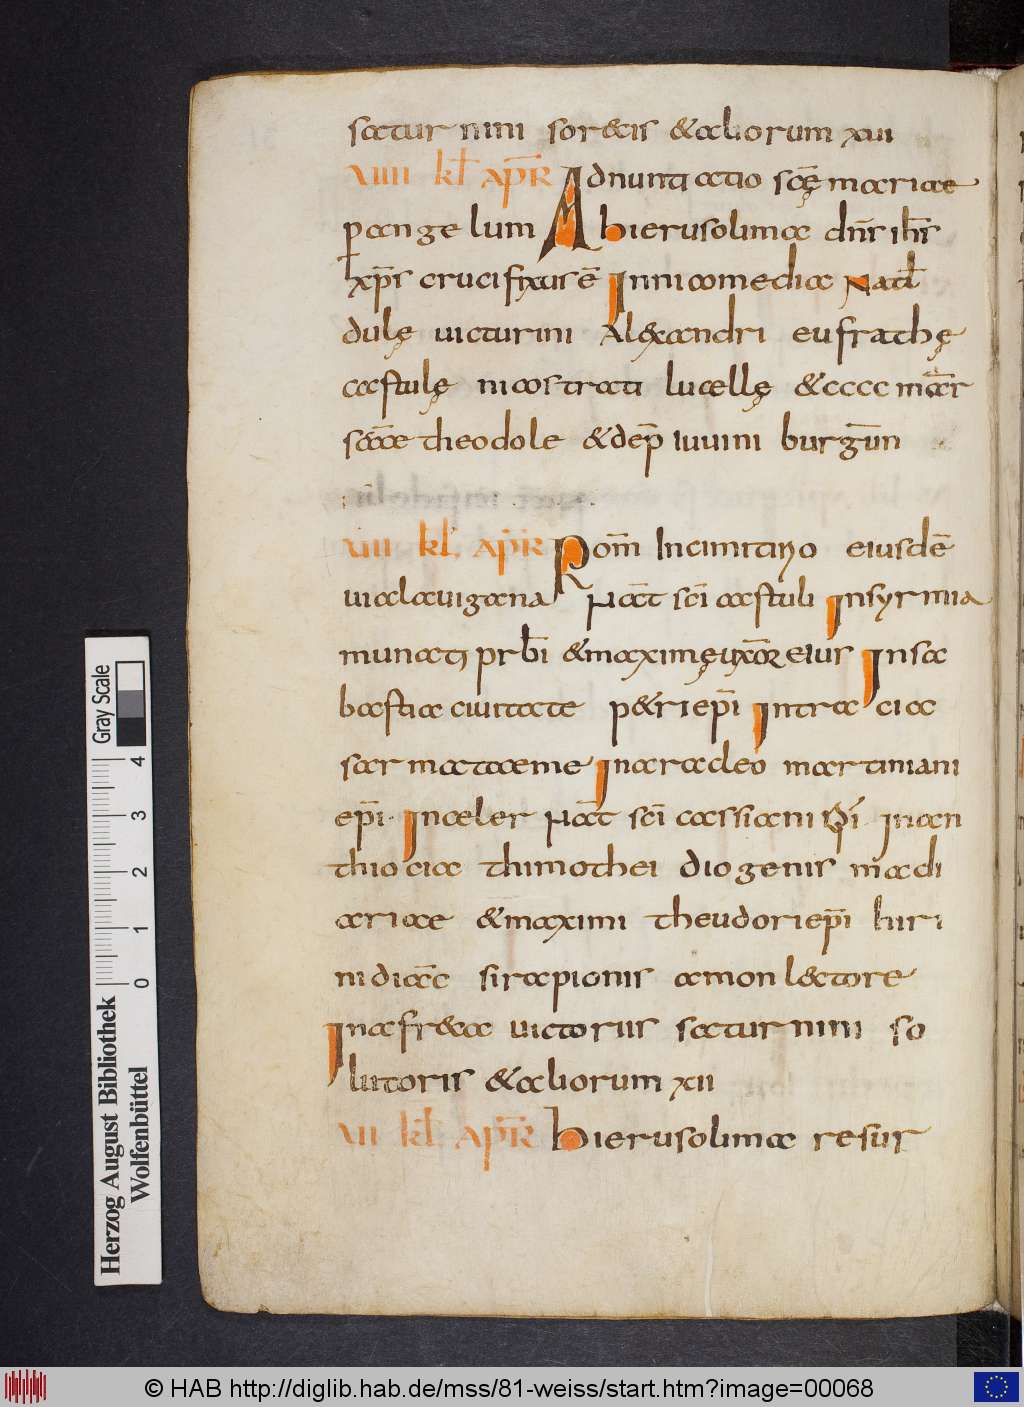 saturnini soretis &aliorum xvii
VIIII kł APR̄ Adnuntiatio scę̄ mariae
pangelum Ab hierusolima dn̄s ih̄s
xp̄s crucifixus ē Innicomedia Natł
dulę victurini Alexandri eufrathę
castulę nicostrati lucellę &cccc mar̄
s&ae theodole &dep̄ iuvini burgun̄
VIII kł APR̄ Rom̄ Incimitirio eiusdē
via lavigana Nat̄ sc̄i castuli Insyrmia
munati prb̄i &maximę uxor̄ eius Insa
bastia civitate p&ri ep̄i Intracia
sarmatae me Inaracleo martiniani
ep̄i Inaeler Nat̄ sc̄i cassiani Inan
thiocia thimothei diogenis macdi
ariae &maximi theudori ep̄i hiri
ni diac̄ sirapionis amon lectore
Inafreca victorus saturnini so
lutoris &aliorum xii
VII kł APR̄ hierusolima resur
Gray Scale
4
3
2
1
0
Herzog August Bibliothek
Wolfenbüttel
© HAB http://diglib.hab.de/mss/81-weiss/start.htm?image=00068